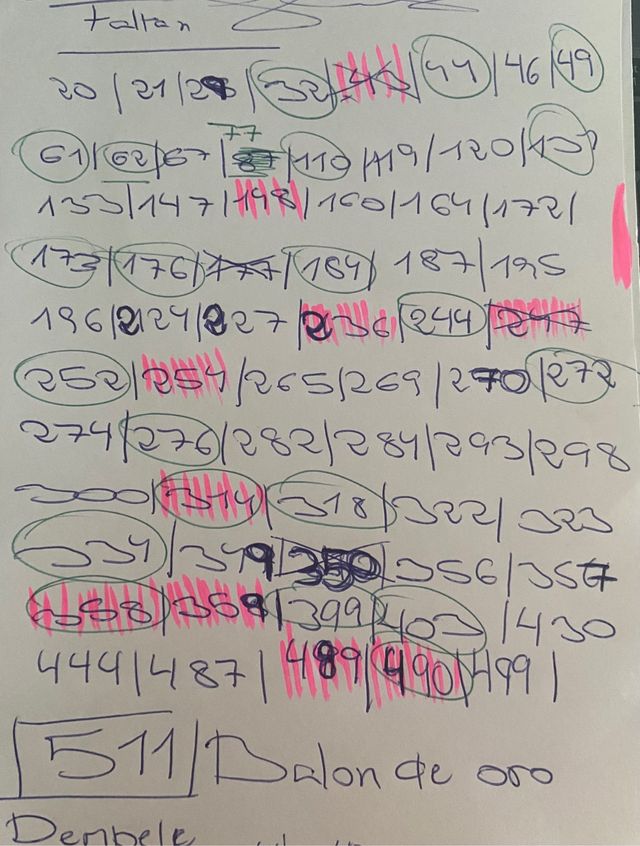 Faltan
20 | 21 | 28 | 32 | 43 | 44 | 46 | 49
77
61 | 62 | 67 | 87 | 110 | 119 | 120 | 132
133 | 147 | 198 | 160 | 164 | 172 |
173 | 176 | 177 | 184 | 187 | 195
196 | 224 | 227 | 236 | 244 | 247
252 | 254 | 265 | 269 | 270 | 272
274 | 276 | 282 | 284 | 293 | 298
300 | 314 | 318 | 322 | 323
334 | 349 | 350 | 356 | 357
358 | 369 | 399 | 403 | 430
444 | 487 | 489 | 490 | 499 |
511 | Balon de oro
Dembele